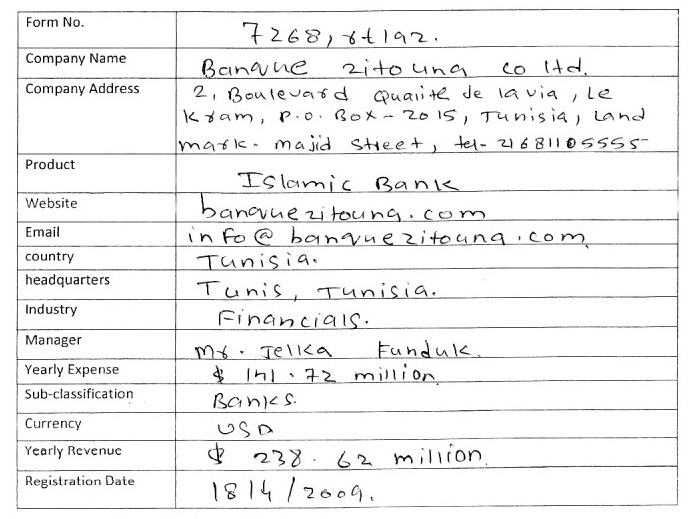 Form No. 7268, rt1az.
Company Name Banque zitouna co ltd.
Company Address 2, Boulevard Qualite de lavia, Le
Kram, P.O. Box - 2015, Tunisia, Land
mark - majid street, tel- 21681105555
Product Islamic Bank
Website banquezitouna.com
Email info@banquezitouna.com
country Tunisia.
headquarters Tunis, Tunisia.
Industry Financials.
Manager Mr. Jelka Funduk.
Yearly Expense $ 141.72 million
Sub-classification Banks.
Currency USD
Yearly Revenue $ 238.62 million.
Registration Date 18/4/2009.